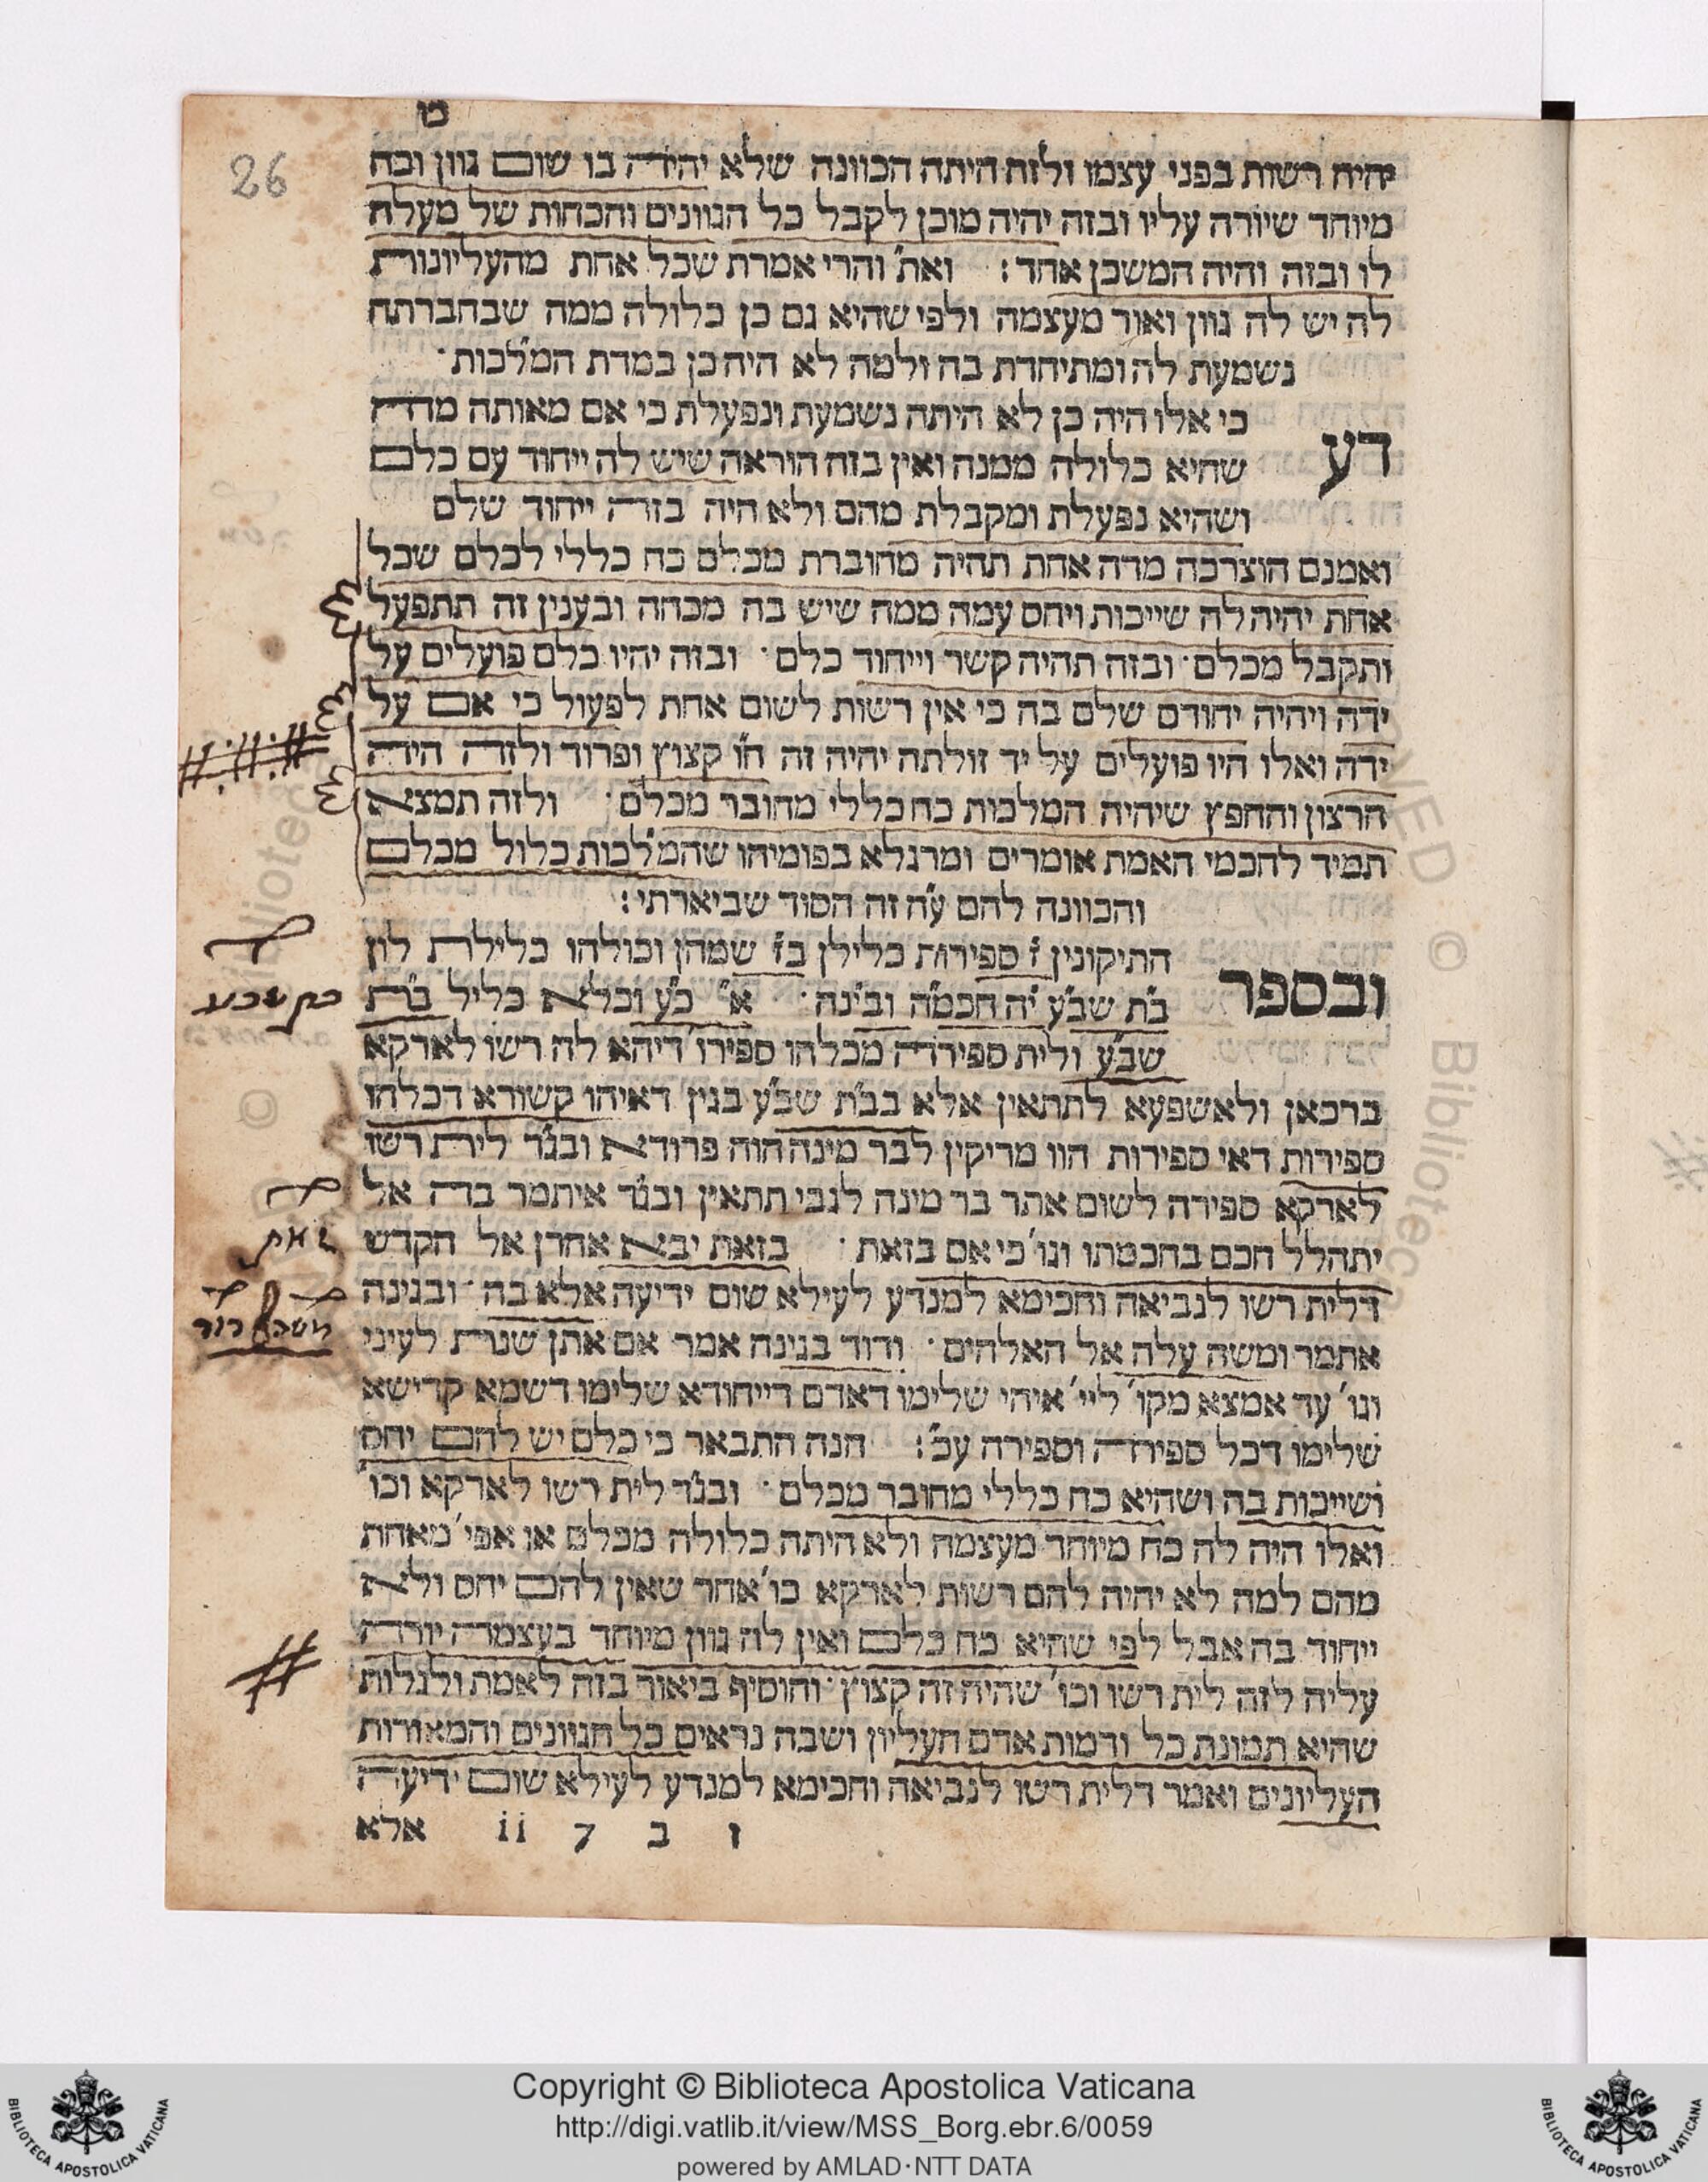 ט
26
יהיה רשות בפני עצמו ולזה היתה הכוונה שלא יהיה בו שום גוון וכח
מיוחד שיורה עליו ובזה יהיה מוכן לקבל כל הגוונים והכחות של מעלה
לו ובזה והיה המשכן אחד : ואת" והרי אמרת שכל אחת מהעליונות
לה יש לה גוון ואור מעצמה ולפי שהיא גם כן כלולה ממה שבחברתה
נשמעת לה ומתיחדת בה ולמה לא היה כן במדת המלכות ·
דע
כי אלו היה כן לא היתה נשמעת ונפעלת כי אם מאותה מדה
שהיא כלולה ממנה ואין בזה הוראה שיש לה ייחוד עם כלם
ושהיא נפעלת ומקבלת מהם ולא היה בזה ייחוד שלם
ואמנם הוצרכה מדה אחת תהיה מחוברת מכלם כח כללי לכלם שכל
אחת יהיה לה שייכות ויחס עמה ממה שיש בה מכחה ובענין זה תתפעל
ותקבל מכלם · ובזה תהיה קשר וייחוד כלם · ובזה יהיו כלם פועלים על
ידה ויהיה יחודם שלם בה כי אין רשות לשום אחת לפעול כי אם על
ידה ואלו היו פועלים על יד זולתה יהיה זה ח"ו קצוץ ופרוד ולזה היה
הרצון והחפץ שיהיה המלכות כח כללי מחובר מכלם · ולזה תמצא
תמיד לחכמי האמת אומרים ומרגלא בפומיהו שהמלכות כלול מכלם
והכוונה להם ע"ה זה הסוד שביארתי :
ובספר
התיקונין ז' ספירות כלילן בז' שמהן וכולהו כלילת לון
בת שבע י"ה חכמה ובינה · א" כ"ע וכלא כליל בת
שבע ולית ספירה מכלהו ספירו' דיהא לה רשו לארקא
ברכאן ולאשפעא לתתאין אלא בבת שבע בגין דאיהו קשורא דכלהו
ספירות דאי ספירות הוו מריקין לבר מינה הוה פרודא ובג"ד לית רשו
לארקא ספירה לשום אתר בר מינה לגבי תתאין ובג"ד איתמר בה אל
יתהלל חכם בחכמתו וגו' כי אם בזאת · בזאת יבא אהרן אל הקדש
דלית רשו לנביאה וחכימא למנדע לעילא שום ידיעה אלא בה · ובגינה
אתמר ומשה עלה אל האלהים · ודוד בגינה אמר אם אתן שנת לעיני
וגו' עד אמצא מקו' ליי' איהי שלימו דאדם דייחודא שלימו דשמא קדישא
שלימו דכל ספירה וספירה עכ"ל : הנה התבאר כי כלם יש להם יחס
ושייכות בה ושהיא כח כללי מחובר מכלם · ובג"ד לית רשו לארקא וכו'
ואלו היה לה כח מיוחד מעצמה ולא היתה כלולה מכלם או אפי' מאחת
מהם למה לא יהיה להם רשות לארקא כו' אחר שאין להם יחס ולא
ייחוד בה אבל לפי שהיא כח כלם ואין לה גוון מיוחד בעצמה יורה
עליה לזה לית רשו וכו' שהיה זה קצוץ · והוסיף ביאור בזה לאמת ולגלות
שהיא תמונת כל ודמות אדם העליון ושבה נראים כל הגוונים והמאורות
העליונים ואמר דלית רשו לנביאה וחכימא למנדע לעילא שום ידיעה
ו ב 7 ii אלא
בת שבע
זאת
משה דוד
Copyright © Biblioteca Apostolica Vaticana
http://digi.vatlib.it/view/MSS_Borg.ebr.6/0059
powered by AMLAD·NTT DATA
BIBLIOTECA APOSTOLICA VATICANA
BIBLIOTECA APOSTOLICA VATICANA